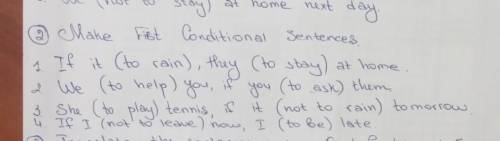 We (not to stay) at home next day.
2 Make First Conditional Sentences.
1 If it (to rain), they (to stay) at home.
2 We (to help) you, if you (to ask) them
3 She (to play) tennis, if it (not to rain) tomorrow.
4 If I (not to leave) now, I (to be) late.